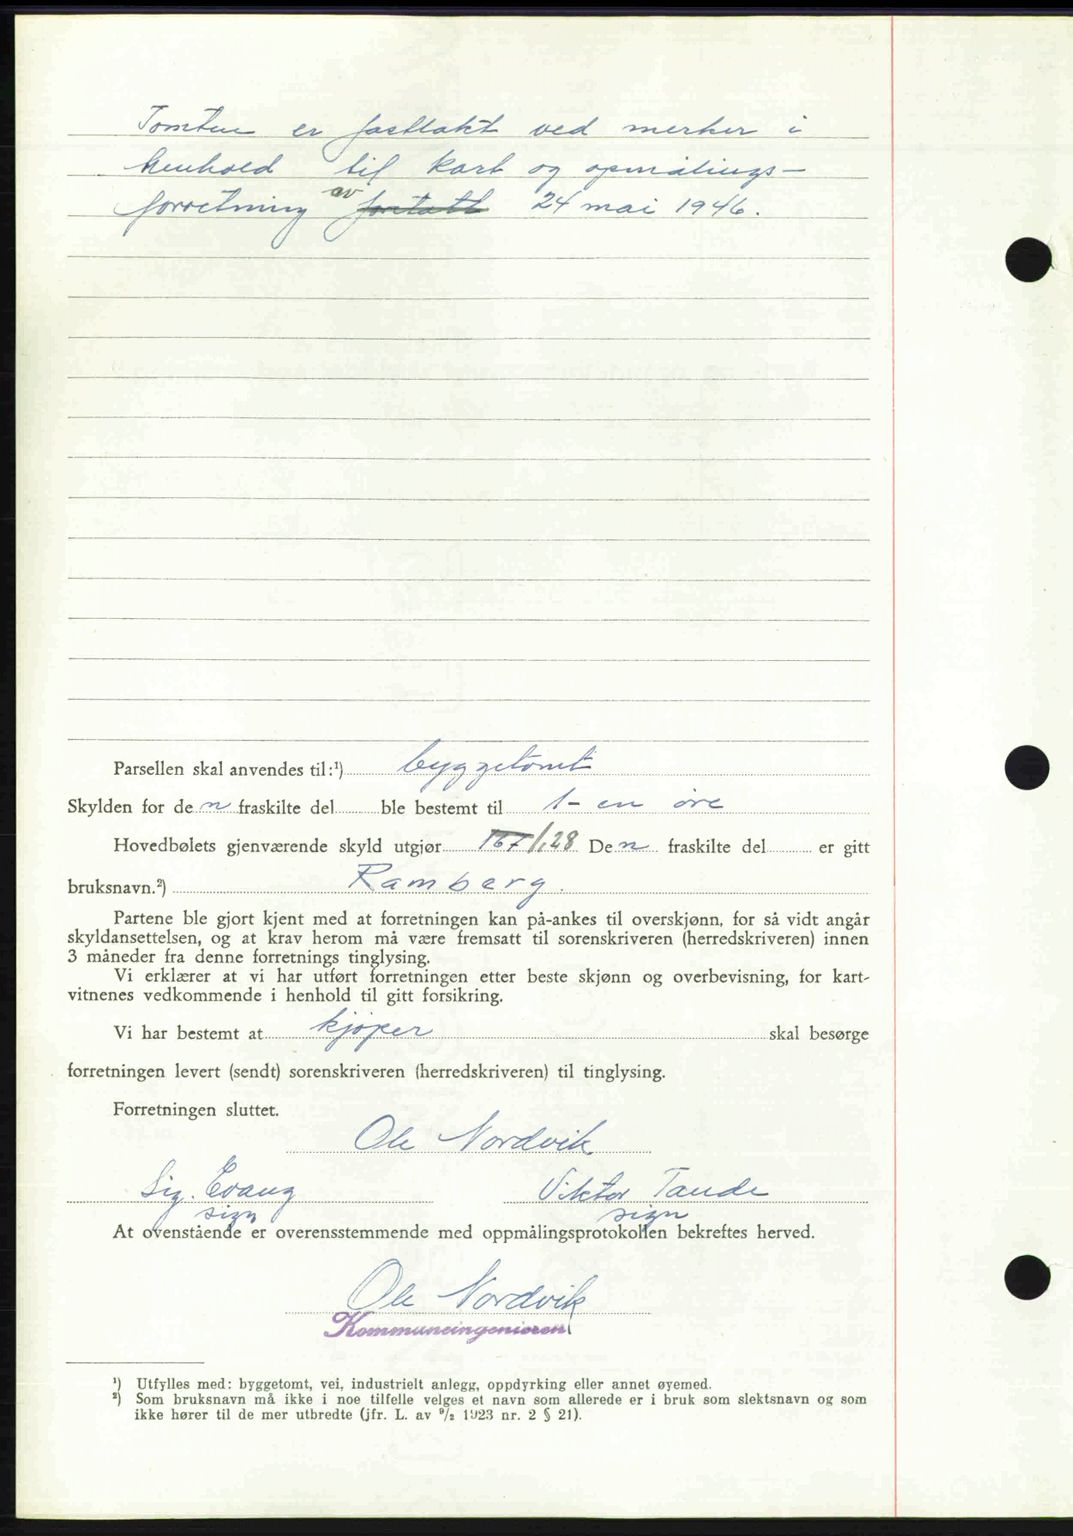 Tomten er fastlakt ved merker i
henhold til kart og opmålings-
forretning av 24 mai 1946.
Parsellen skal anvendes til:¹) byggetomt
Skylden for den fraskilte del ble bestemt til 1- en øre
Hovedbølets gjenværende skyld utgjør 1,28 Den fraskilte del er gitt
bruksnavn.²) Ramberg.
Partene ble gjort kjent med at forretningen kan på-ankes til overskjønn, for så vidt angår
skyldansettelsen, og at krav herom må være fremsatt til sorenskriveren (herredskriveren) innen
3 måneder fra denne forretnings tinglysing.
Vi erklærer at vi har utført forretningen etter beste skjønn og overbevisning, for kart-
vitnenes vedkommende i henhold til gitt forsikring.
Vi har bestemt at kjøper skal besørge
forretningen levert (sendt) sorenskriveren (herredskriveren) til tinglysing.
Forretningen sluttet.
Ole Nordvik
Sig. Evang Viktor Tande
sign sign
At ovenstående er overensstemmende med oppmålingsprotokollen bekreftes herved.
Ole Nordvik
Kommuneingeniøren
¹) Utfylles med: byggetomt, vei, industrielt anlegg, oppdyrking eller annet øyemed.
²) Som bruksnavn må ikke i noe tilfelle velges et navn som allerede er i bruk som slektsnavn og som
ikke hører til de mer utbredte (jfr. L. av ⁹/₂ 1923 nr. 2 § 21).